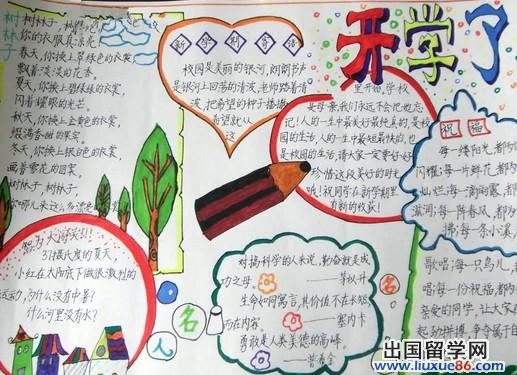 开学了
树林子
树林子,树林子
你的衣服真漂亮
春天,你换上翠绿色的衣裳
飘着淡淡的花香。
夏天,你换上
闪着耀眼的光芒。
秋天,你换上金黄色的衣裳
冬天,你换上银白色的衣裳
树林子,树林子,
新学期寄语
校园是美丽的银河,朗朗书声
是银河上回荡的清波,老师踏着清
波,把希望的种子播
希望就从
这
里开始,学校
是母亲,我们永远不会把她忘
记!人的一生中最美好最纯真的,是校
园的生活,人的一生中最短最快的,也
是校园的生活,请大家一定要好好
珍惜这段美好的时光
哦!祝同学在新学期里
有新的收获!
祝福
每一缕阳光,都
闪耀;每一片鲜花,都
灿烂;每一滴雨露,都
每一阵春风,都
每一条小溪,
歌唱;每一只鸟儿,
唱;每一份祝福,都
亲爱的同学,让大家
智力大闯关!!!
31摄氏度的夏天,
小红在太阳底下做很激烈的
运动,为什么没有中暑?
什么河里没有水?
名人名言
对搞科学的人来说,勤奋就是成
功之母。
——茅以升
生命如同寓言,其价值不在长短
而在内容。
——塞内卡
勇敢是人类美德的高峰。
——普希金
出国留学网
www.liuxue86.com